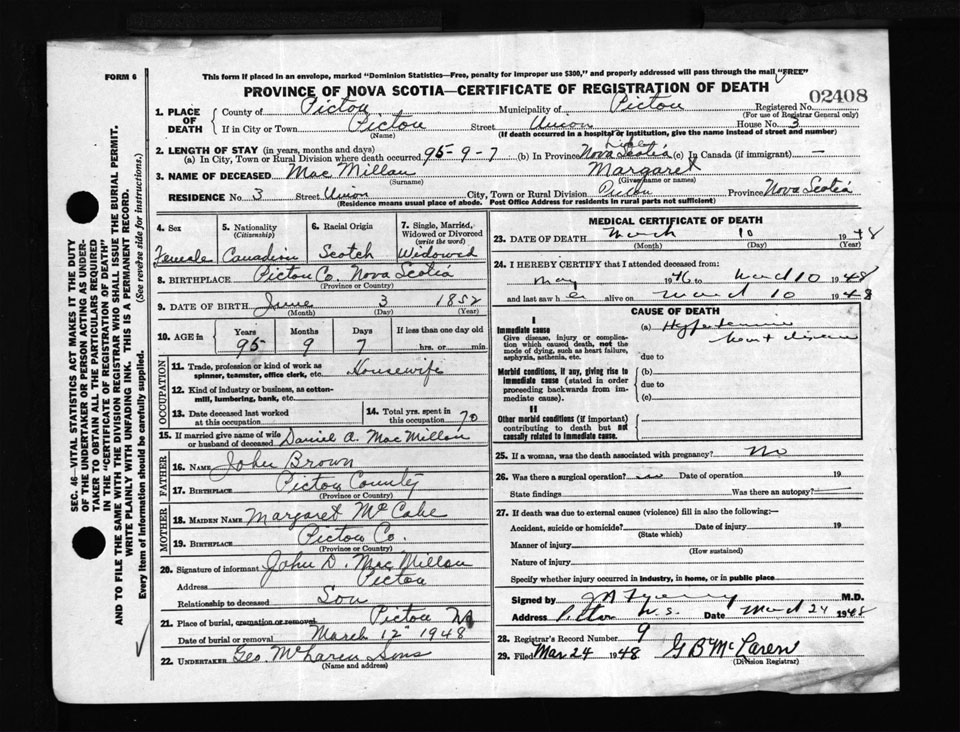 FORM 6
This form if placed in an envelope, marked "Dominion Statistics—Free, penalty for improper use $300," and properly addressed will pass through the mail "FREE"
PROVINCE OF NOVA SCOTIA—CERTIFICATE OF REGISTRATION OF DEATH
02408
1. PLACE OF DEATH
County of Pictou Municipality of Pictou Registered No.
(For use of Registrar General only)
If in City or Town Pictou Street Union House No. 3
(Name) (If death occurred in a hospital or institution, give the name instead of street and number)
2. LENGTH OF STAY (in years, months and days)
(a) In City, Town or Rural Division where death occurred 95-9-7 (b) In Province Nova Scotia (c) In Canada (if immigrant) —
3. NAME OF DECEASED MacMillan Margaret
(Surname) (Given name or names)
RESIDENCE No. 3 Street Union City, Town or Rural Division Pictou Province Nova Scotia
(Residence means usual place of abode. Post Office Address for residents in rural parts not sufficient)
4. Sex 5. Nationality (Citizenship) 6. Racial Origin 7. Single, Married, Widowed or Divorced (write the word)
Female Canadian Scotch Widowed
8. BIRTHPLACE Pictou Co. Nova Scotia
(Province or Country)
9. DATE OF BIRTH June 3 1852
(Month) (Day) (Year)
10. AGE in Years Months Days If less than one day old
95 9 7 hrs. or min.
OCCUPATION
11. Trade, profession or kind of work as spinner, teamster, office clerk, etc. Housewife
12. Kind of industry or business, as cotton-mill, lumbering, bank, etc.
13. Date deceased last worked at this occupation
14. Total yrs. spent in this occupation 70
15. If married give name of wife or husband of deceased Daniel A. MacMillan
FATHER
16. NAME John Brown
17. BIRTHPLACE Pictou County
(Province or Country)
MOTHER
18. MAIDEN NAME Margaret McCabe
19. BIRTHPLACE Pictou Co.
(Province or Country)
20. Signature of informant John D. MacMillan
Address Pictou
Relationship to deceased Son
21. Place of burial, cremation or removal Pictou NS
Date of burial or removal March 12" 1948
22. UNDERTAKER Geo. McLaren Sons
(Name and address)
MEDICAL CERTIFICATE OF DEATH
23. DATE OF DEATH March 10 1948
(Month) (Day) (Year)
24. I HEREBY CERTIFY that I attended deceased from:
May 1946 to March 10 1948
and last saw her alive on March 10 1948
CAUSE OF DEATH
I
Immediate cause (a) Hypertensive
heart disease
Give disease, injury or complication which caused death, not the mode of dying, such as heart failure, asphyxia, asthenia, etc.
due to
Morbid conditions, if any, giving rise to immediate cause (stated in order proceeding backwards from immediate cause).
(b)
due to
(c)
II
Other morbid conditions (if important) contributing to death but not causally related to immediate cause.
25. If a woman, was the death associated with pregnancy? No
26. Was there a surgical operation? no Date of operation 19
State findings Was there an autopsy? —
27. If death was due to external causes (violence) fill in also the following:—
Accident, suicide or homicide? Date of injury 19
(State which)
Manner of injury
(How sustained)
Nature of injury
Specify whether injury occurred in industry, in home, or in public place
Signed by M.D.
Address Pictou N.S. Date March 24 1948
28. Registrar's Record Number 9
29. Filed Mar 24 1948 G B McLaren
(Division Registrar)
SEC. 46—VITAL STATISTICS ACT MAKES IT THE DUTY
OF THE UNDERTAKER OR PERSON ACTING AS UNDER-
TAKER TO OBTAIN ALL THE PARTICULARS REQUIRED
IN THE "CERTIFICATE OF REGISTRATION OF DEATH"
AND TO FILE THE SAME WITH THE DIVISION REGISTRAR WHO SHALL ISSUE THE BURIAL PERMIT.
WRITE PLAINLY WITH UNFADING INK. THIS IS A PERMANENT RECORD.
Every item of information should be carefully supplied. (See reverse side for instructions.)